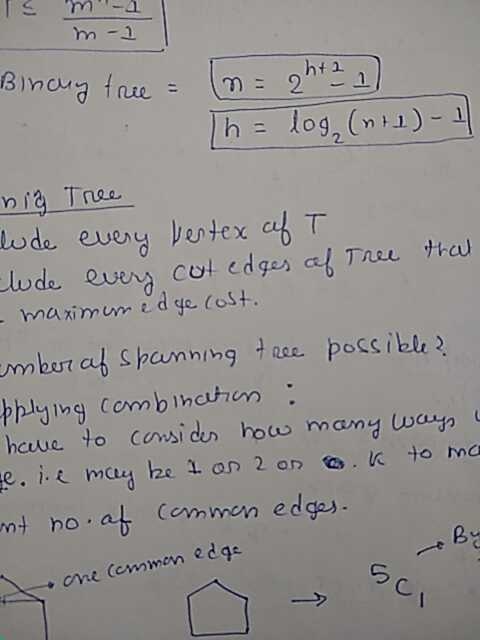 m - 1
m - 1
Binary tree = n = 2^(h+1) - 1
h = log₂(n+1) - 1
Tree
every vertex of T
every cut edges of Tree that
maximum edge cost.
of spanning tree possible?
combination :
have to consider how many ways
i.e may be 1 or 2 or . k to
no. of common edges.
By
one common edge → ⁵C₁